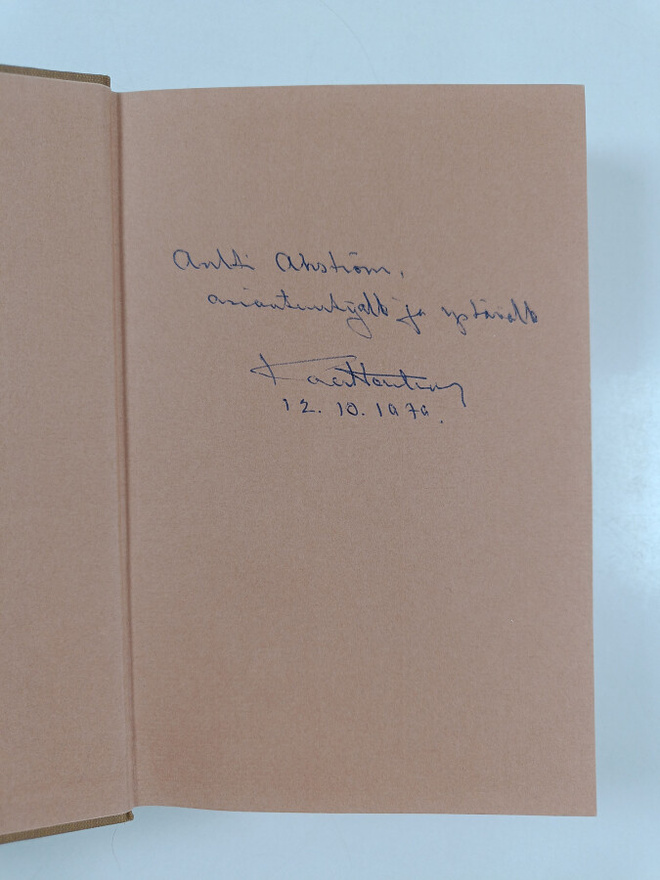 Antti Ahström,
asiantuntijalle ja ystävälle
12. 10. 1979.